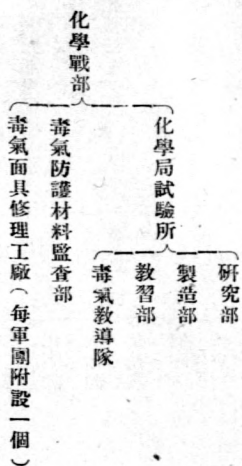 化學戰部
化學局試驗所
研究部
製造部
教習部
毒氣教導隊
毒氣防護材料監查部
毒氣面具修理工廠（每軍團附設一個）